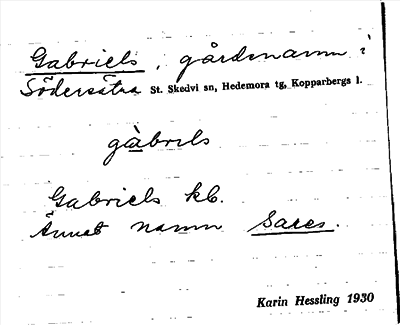 Gabriels, gårdsnamn i
Södersätra St. Skedvi sn, Hedemora tg, Kopparbergs l.
gàbrils
Gabriels kb.
Annat namn Sares.
Karin Hessling 1930